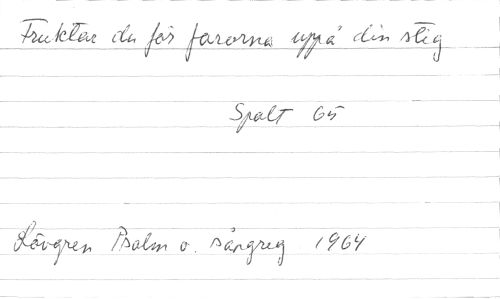 Fruktar du för farorna uppå din stig
Spalt 65
Lövgren Psalm o. sångreg 1964